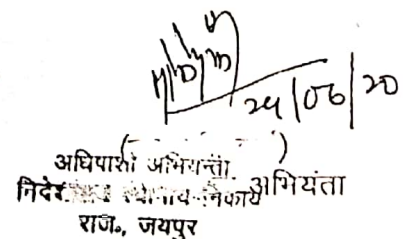 24/06/20
( )
अधिपाशी अभियन्ता
निदेशालय स्थानीय निकाय अभियंता
राज., जयपुर